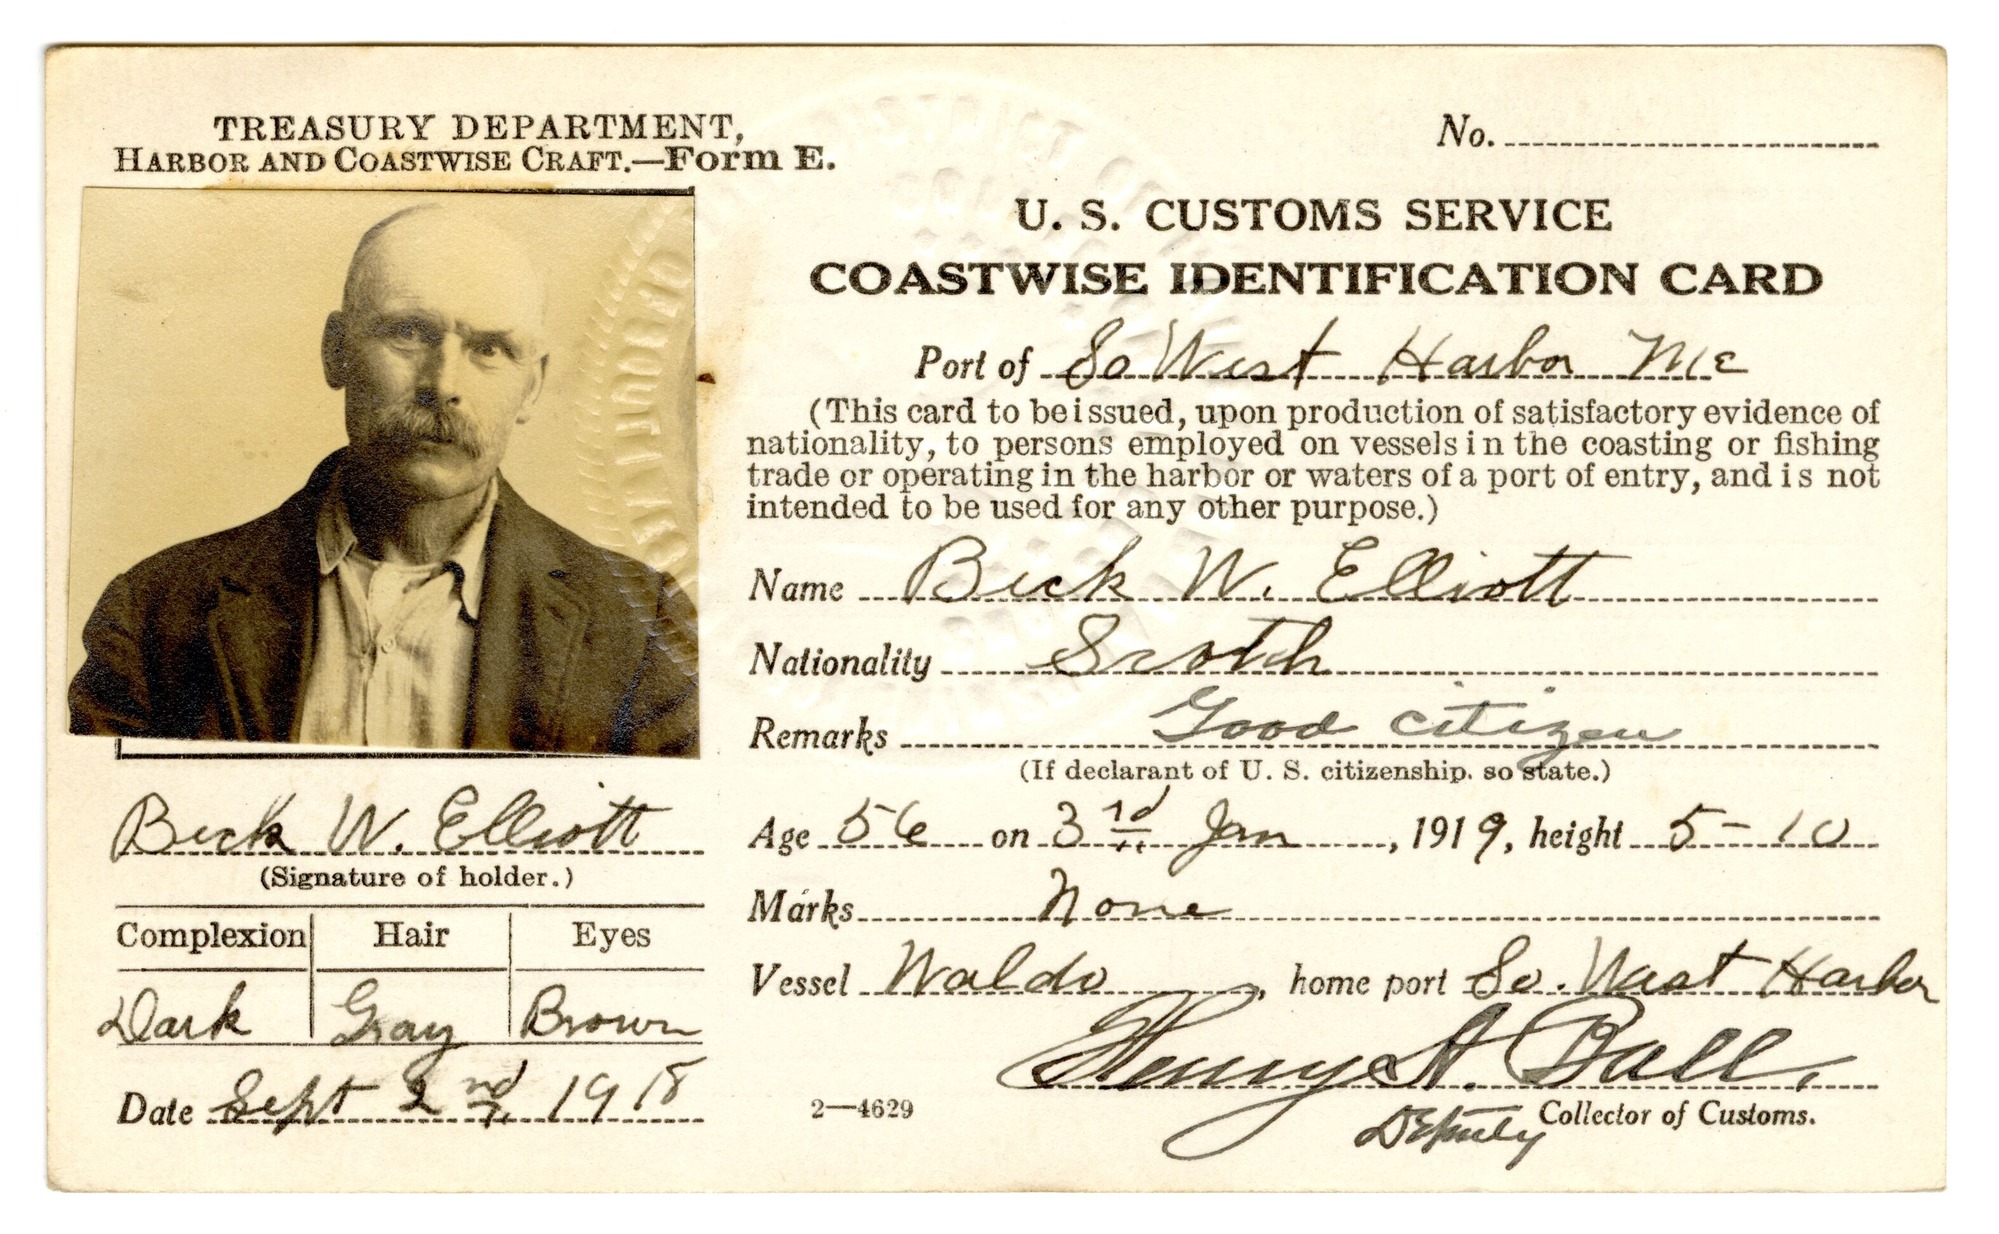 TREASURY DEPARTMENT,
HARBOR AND COASTWISE CRAFT.—Form E.
No.
U. S. CUSTOMS SERVICE
COASTWISE IDENTIFICATION CARD
Port of So West Harbor Me
(This card to be issued, upon production of satisfactory evidence of
nationality, to persons employed on vessels in the coasting or fishing
trade or operating in the harbor or waters of a port of entry, and is not
intended to be used for any other purpose.)
Name Beck W. Elliott
Nationality Scotch
Remarks Good citizen
(If declarant of U. S. citizenship, so state.)
Age 56 on 3rd Jan, 1919, height 5-10
Marks None
Vessel Waldo, home port So. West Harbor
Henry A. Ball,
Deputy Collector of Customs.
2—4629
Beck W. Elliott
(Signature of holder.)
Complexion Hair Eyes
Dark Gray Brown
Date Sept 2nd, 1918